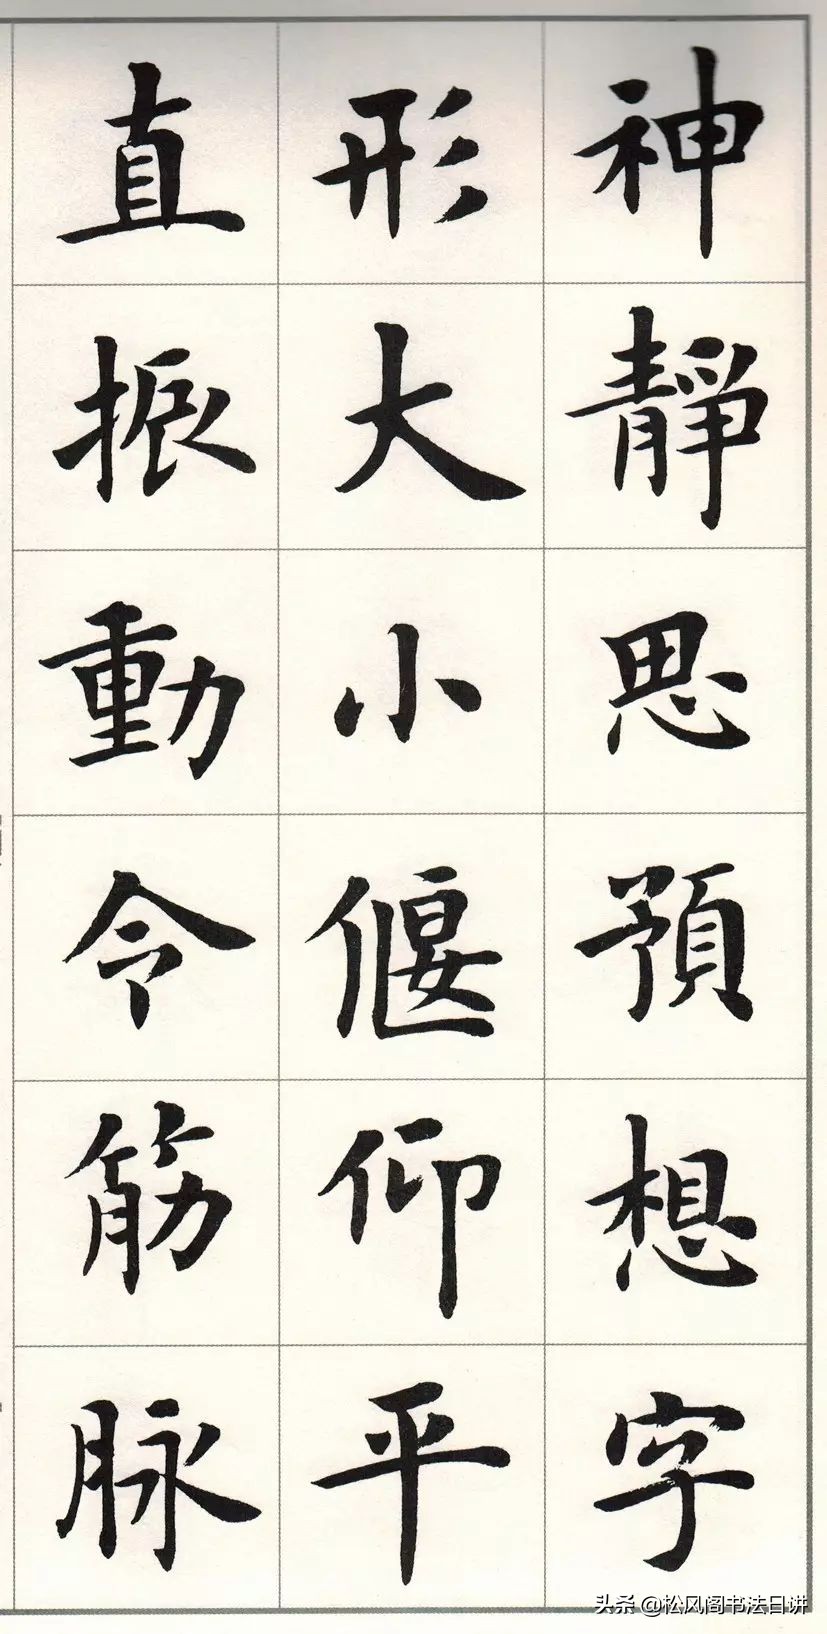 神靜思預想字
形大小偃仰平
直振動令筋脉
头条 @松风阁书法日讲